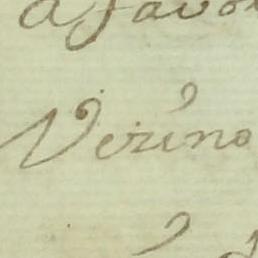 a favor
Vezino